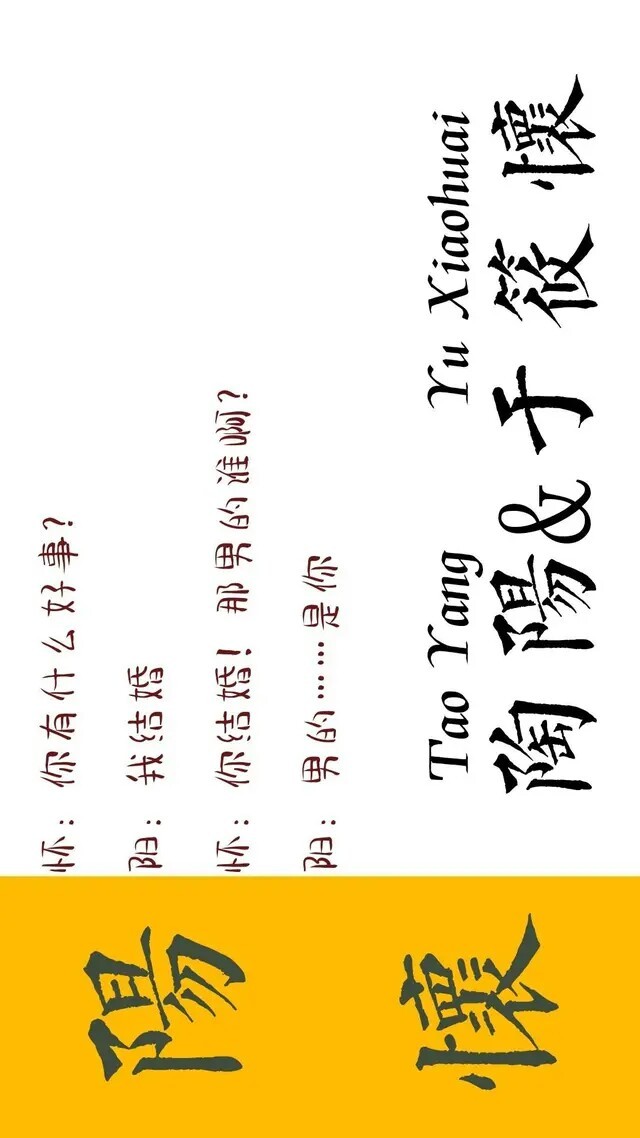 怀：你有什么好事？
阳：我结婚
怀：你结婚！那男的谁啊？
阳：男的……是你
Tao Yang Yu Xiaohuai
陶陽&于筱懷
陽
懷